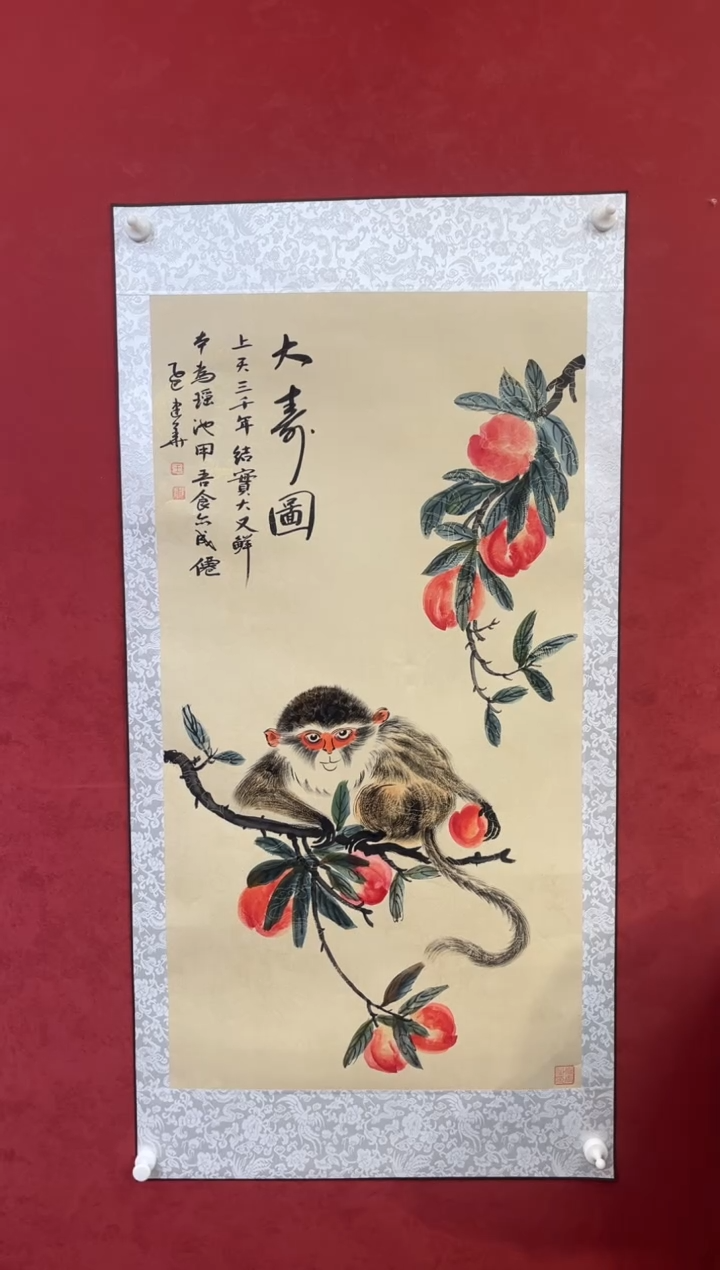 大壽圖
上天三千年結實大又鮮
本為瑤池甲吾食亦成僊
乙巳建華